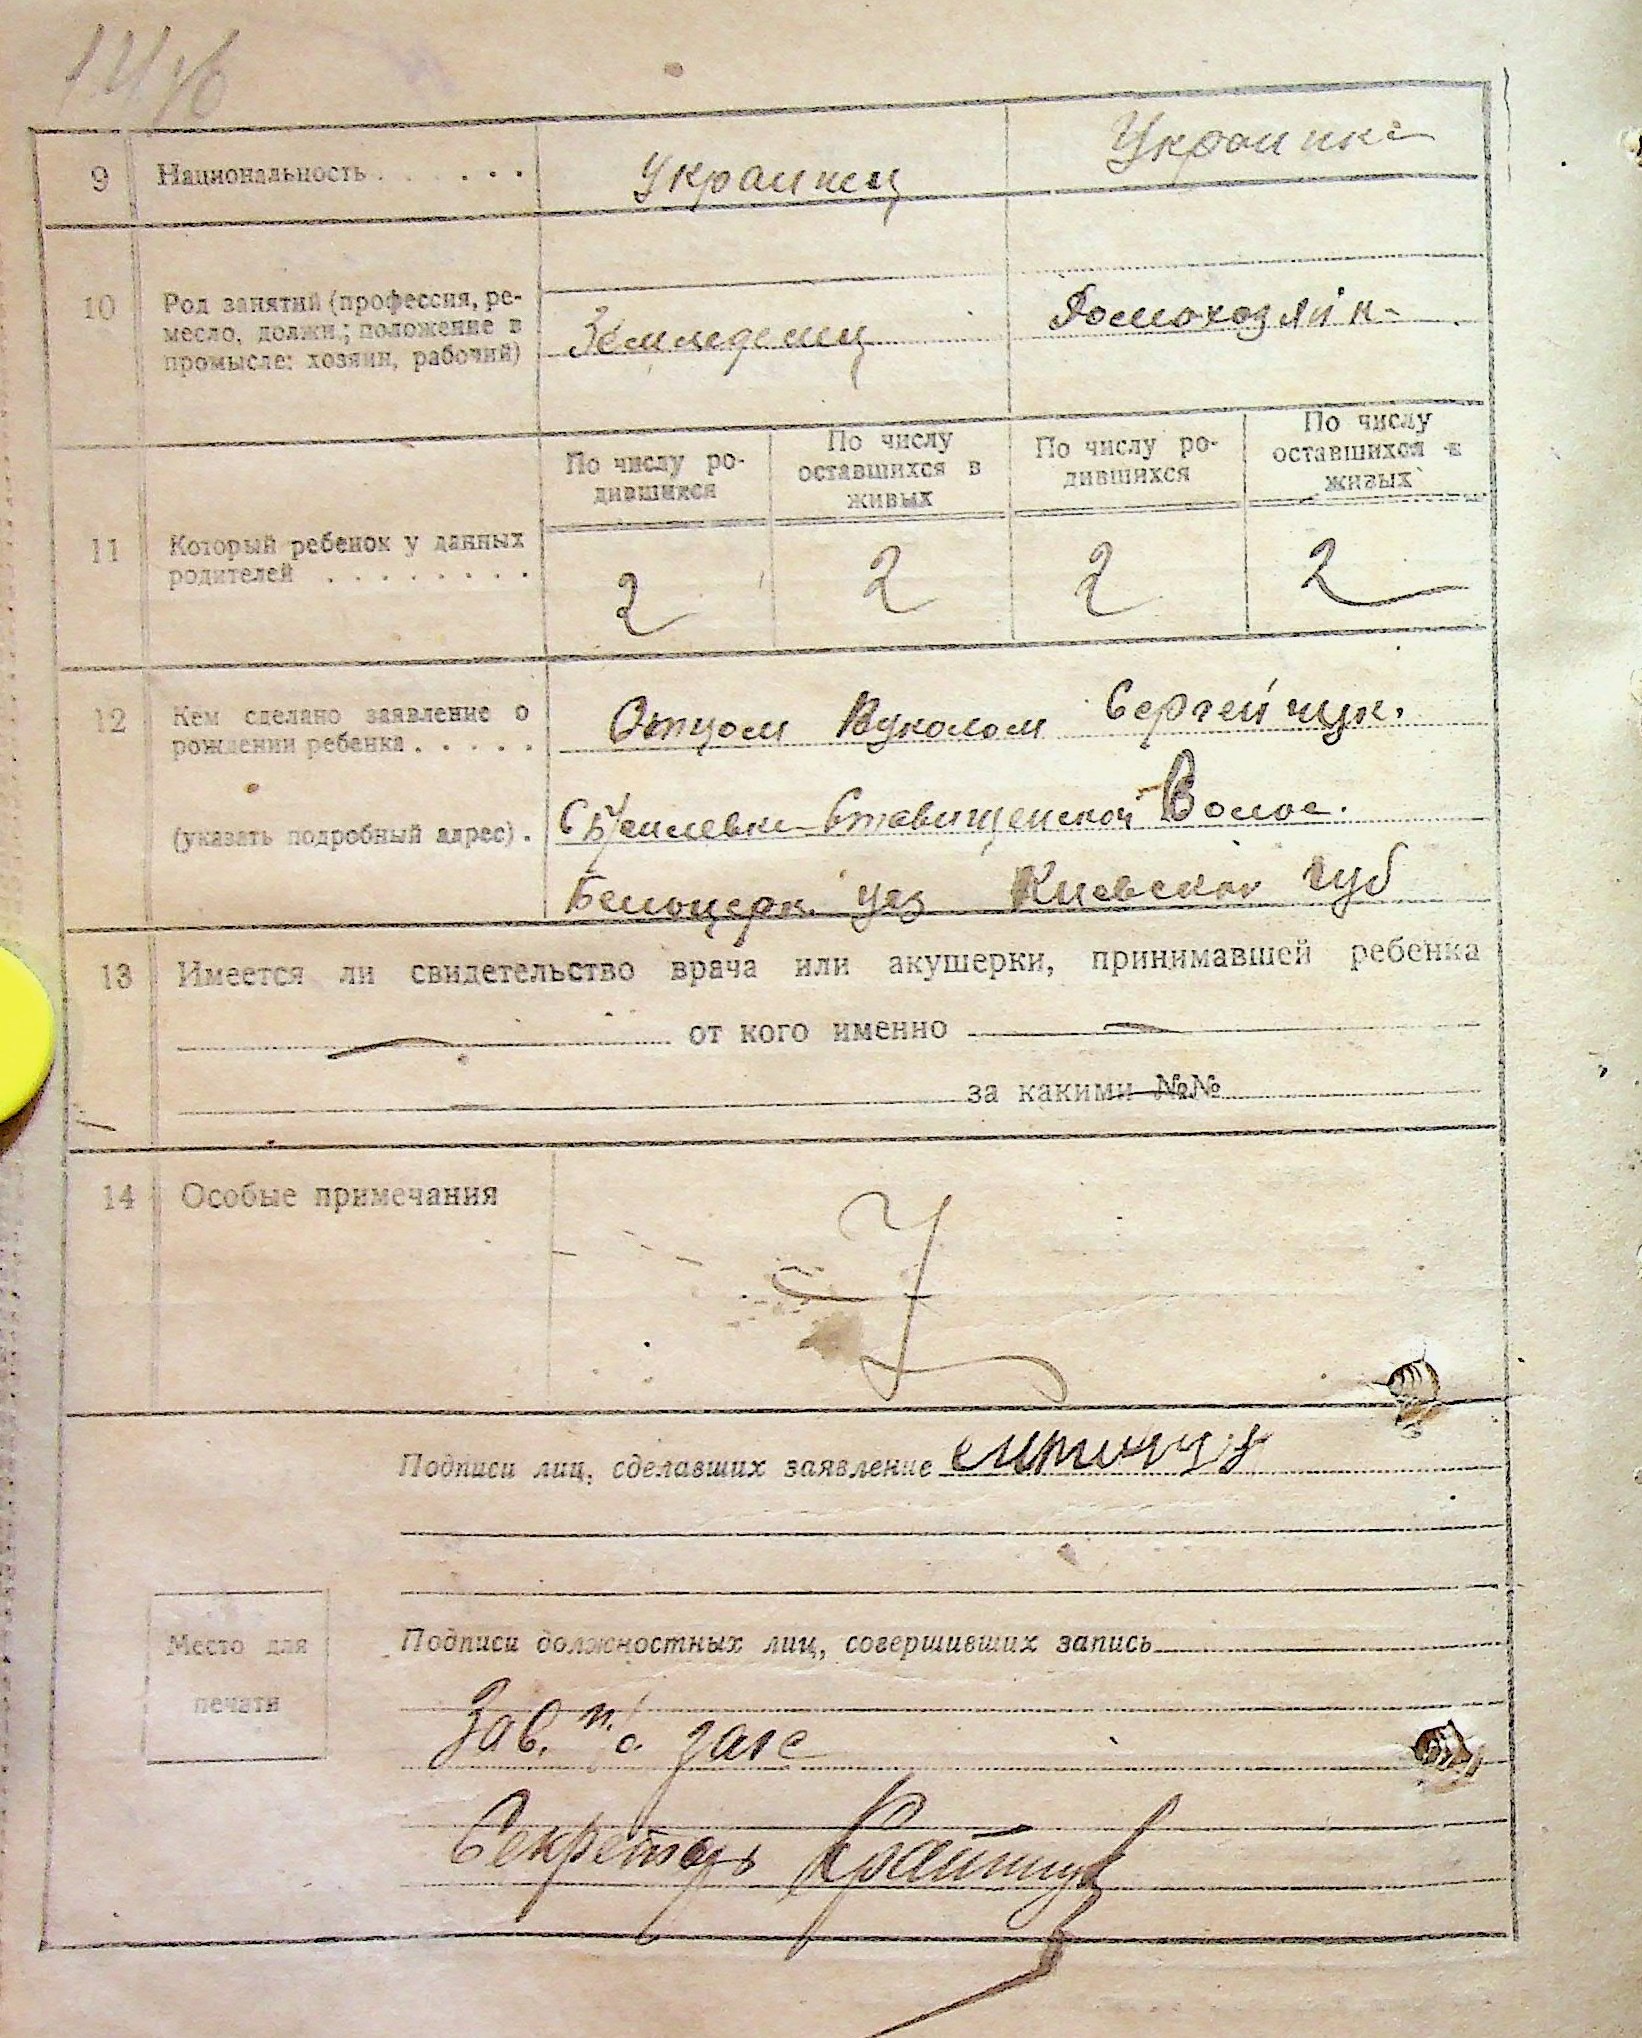 9 Национальность . . . . . . Украинец Украинка
10 Род занятий (профессия, ре-
месло, должн.; положение в
промысле: хозяин, рабочий)
Земледелец Домохозяйк-
11 Который ребенок у данных
родителей . . . . . . . .
По числу ро-
дившихся
По числу
оставшихся в
живых
По числу ро-
дившихся
По числу
оставшихся в
живых
2 2 2 2
12 Кем сделано заявление о
рождении ребенка . . . . .
Отцом Вуколом Сергейчук.
(указать подробный адрес) .
Ставищенской Волос.
Белоцерк. уез Киевской губ
13 Имеется ли свидетельство врача или акушерки, принимавшей ребенка
от кого именно
за какими №№
14 Особые примечания
Подписи лиц, сделавших заявление
Подписи должностных лиц, совершивших запись
Место для
печати
Зав. п/о загс
Секретарь